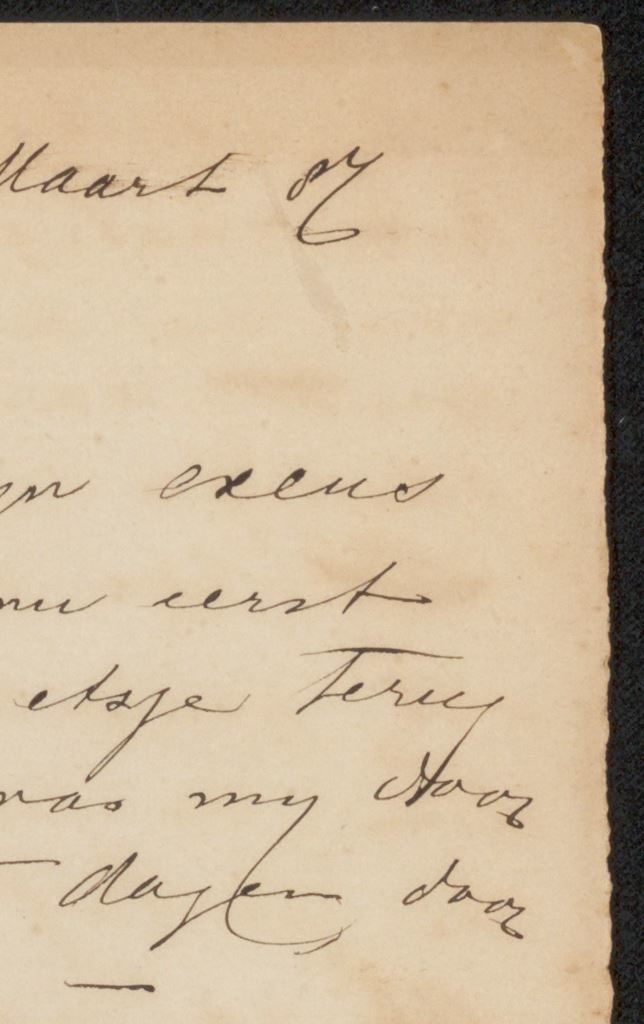 Maart 87
excuus
nu eerst
etsje terug
was my door
dagen door